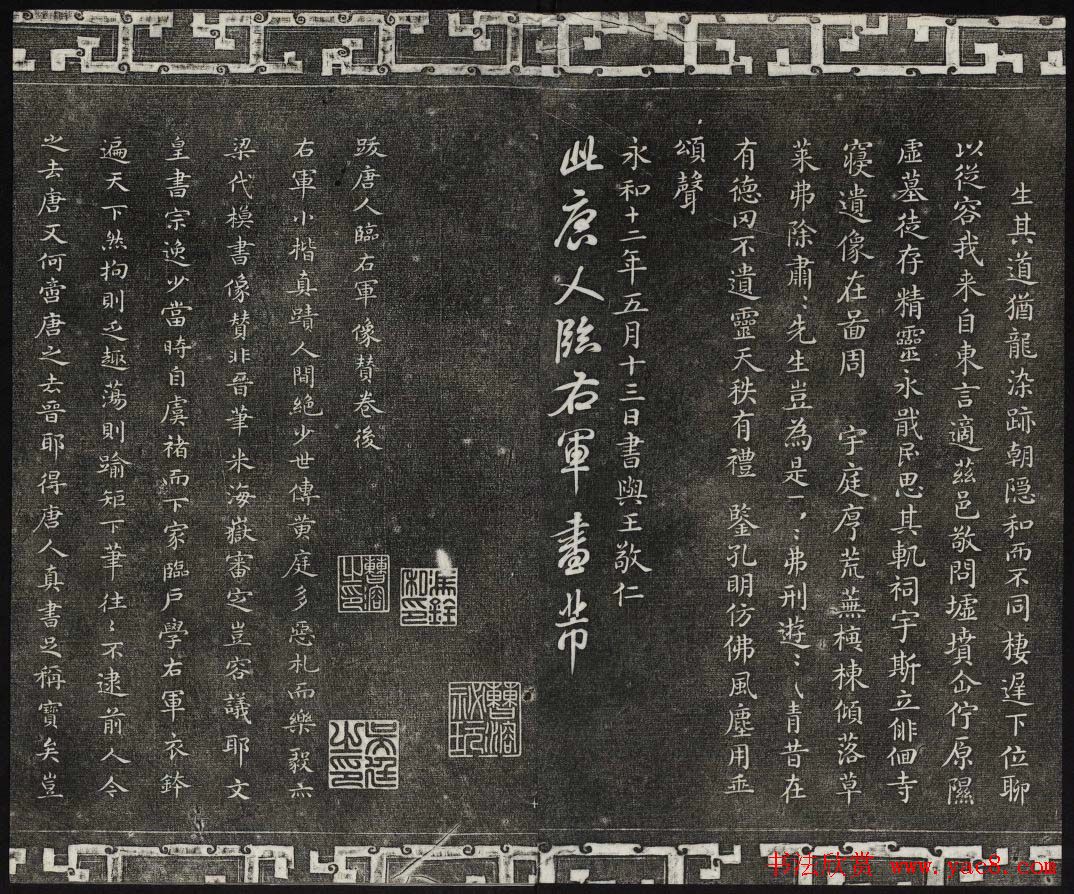 生其道猶龍染跡朝隱和而不同棲遲下位聊
以從容我来自東言適茲邑敬問墟墳企佇原隰
虛墓徒存精靈永戢民思其軌祠宇斯立俳佪寺
寢遺像在啚周 宇庭序荒蕪榱棟傾落草
萊弗除肅〻先生豈為是一〻弗刑遊〻乀青昔在
有德罔不遺靈天秩有禮 鑒孔明仿佛風塵用垂
頌聲
永和十二年五月十三日書與王敬仁
此唐人臨右軍畫
跋唐人臨右軍像贊卷後
右軍小楷真蹟人間絶少世傳黄庭多惡札而樂毅亦
梁代模書像贊非晉筆米海嶽審定豈容議耶文
皇書宗逸少當時自虞褚而下家臨戶學右軍衣鉢
遍天下然拘則乏趣蕩則踰矩下筆往〻不逮前人今
之去唐又何啻唐之去晉耶得唐人真書足稱寶矣豈
曹溶之印
馮銓私印
曹溶祕玩
吳廷之印
书法欣赏 www.yac8.com